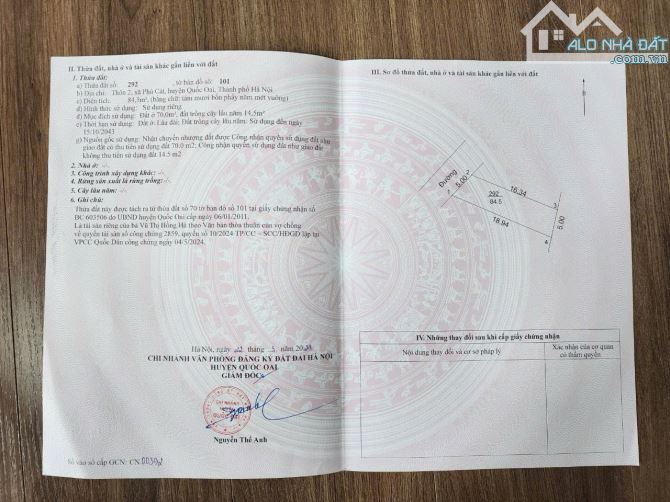 ALO NHÀ ĐẤT
II. Thửa đất, nhà ở và tài sản khác gắn liền với đất
1. Thửa đất:
a) Thửa đất số: 292 , tờ bản đồ số: 101
b) Địa chỉ: Thôn 2, xã Phú Cát, huyện Quốc Oai, Thành phố Hà Nội
c) Diện tích: 84,5m², (bằng chữ: tám mươi bốn phẩy năm mét vuông)
d) Hình thức sử dụng: Sử dụng riêng
đ) Mục đích sử dụng: Đất ở 70,0m², đất trồng cây lâu năm 14,5m²
e) Thời hạn sử dụng: Đất ở: Lâu dài; Đất trồng cây lâu năm: Sử dụng đến ngày
15/10/2043
g) Nguồn gốc sử dụng: Nhận chuyển nhượng đất được Công nhận quyền sử dụng đất như
giao đất có thu tiền sử dụng đất 70.0 m2; Công nhận quyền sử dụng đất như giao đất
không thu tiền sử dụng đất 14.5 m2
2. Nhà ở: -/-
3. Công trình xây dựng khác: -/-
4. Rừng sản xuất là rừng trồng: -/-
5. Cây lâu năm: -/-
6. Ghi chú:
Thửa đất này được tách ra từ thửa đất số 70 tờ bản đồ số 101 tại giấy chứng nhận số
BC 603506 do UBND huyện Quốc Oai cấp ngày 06/01/2011.
Là tài sản riêng của bà Vũ Thị Hồng Hà theo Văn bản thỏa thuận của vợ chồng
về quyền tài sản số công chứng 2859, quyển số 10/2024 TP/CC – SCC/HĐGD lập tại
VPCC Quốc Dân công chứng ngày 04/5/2024.
Hà Nội, ngày tháng 5 năm
CHI NHÁNH VĂN PHÒNG ĐĂNG KÝ ĐẤT ĐAI HÀ NỘI
HUYỆN QUỐC OAI
GIÁM ĐỐC
CHI NHÁNH
QUỐC OAI
Nguyễn Thế Anh
Số vào sổ cấp GCN: CN
III. Sơ đồ thửa đất, nhà ở và tài sản khác gắn liền với đất
Đường
5.00
1
2
16.34
292
84.5
3
5.00
18.94
4
IV. Những thay đổi sau khi cấp giấy chứng nhận
Nội dung thay đổi và cơ sở pháp lý
Xác nhận của cơ quan
có thẩm quyền